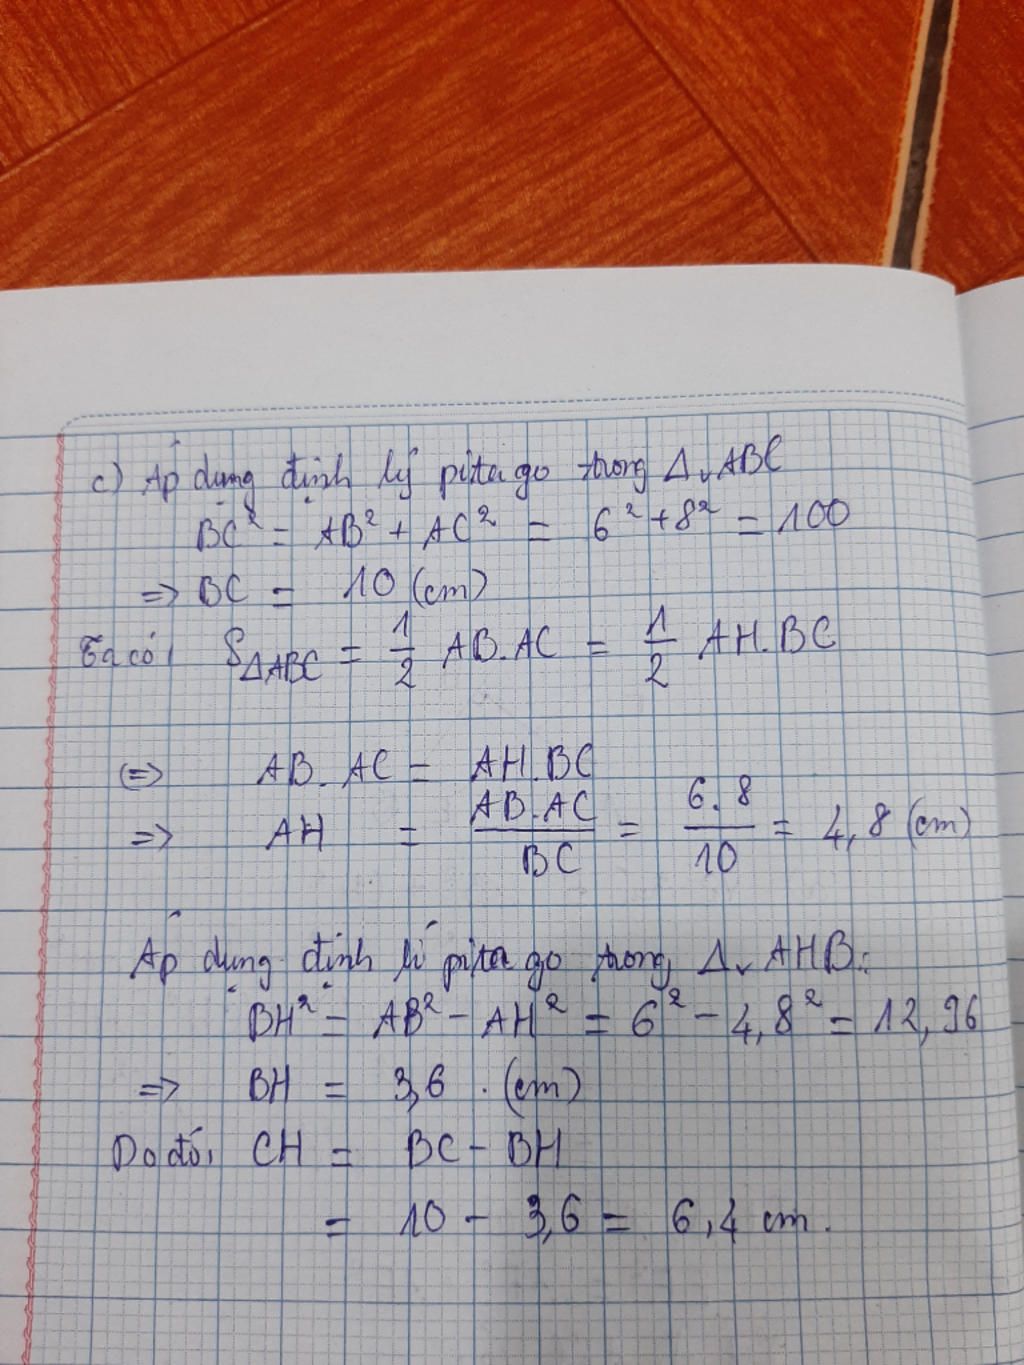 c) Áp dụng định lý pitago trong Δv ABC
BC² = AB² + AC² = 6² + 8² = 100
=> BC = 10 (cm)
Ta có, SΔABC = 1/2 AB.AC = 1/2 AH.BC
(=> AB.AC = AH.BC
=> AH = AB.AC/BC = 6.8/10 = 4,8 (cm)
Áp dụng định lí pitago trong Δv AHB:
BH² = AB² - AH² = 6² - 4,8² = 12,96
=> BH = 3,6 (cm)
Do đó, CH = BC - BH
= 10 - 3,6 = 6,4 cm.